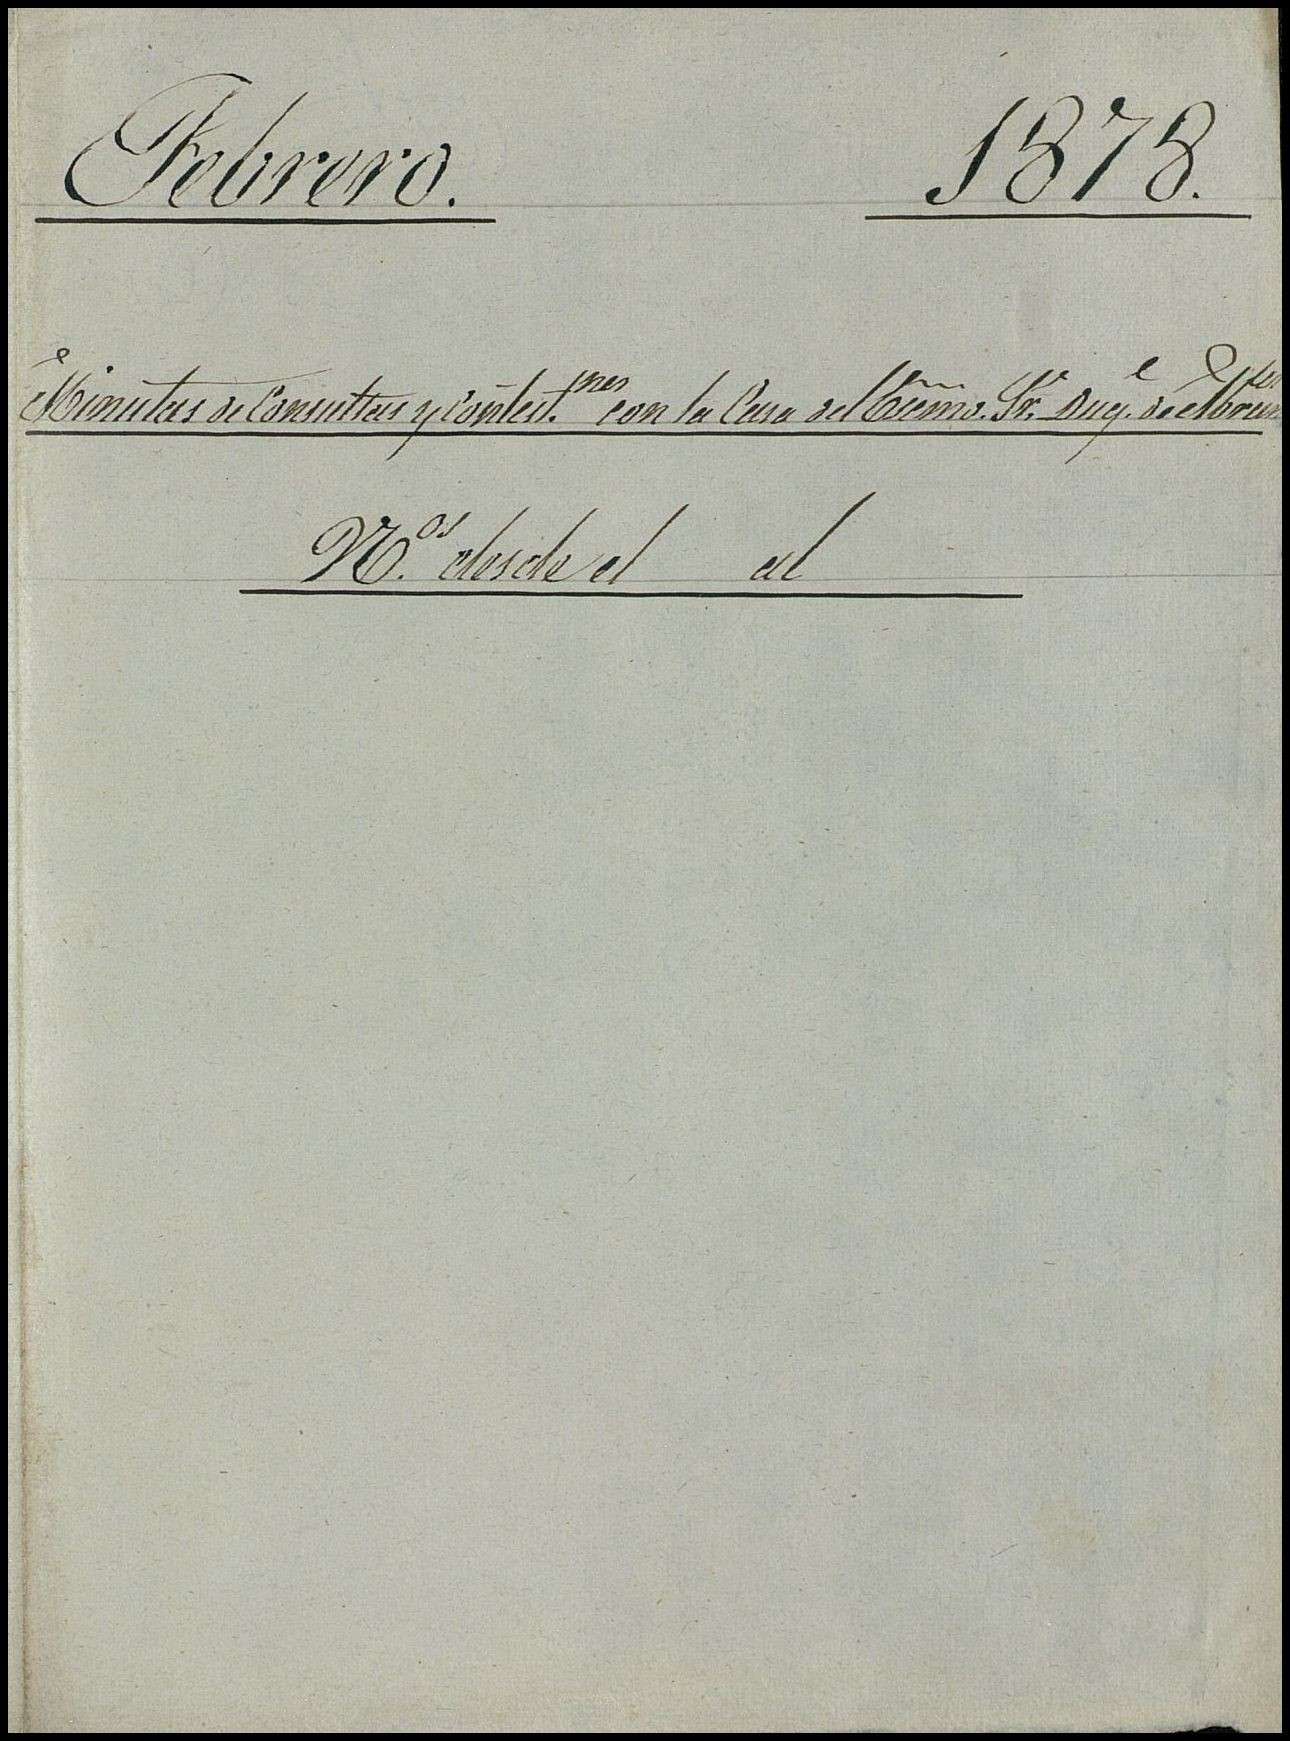 Febrero. 1878.
Minutas de Consultas y contest.ones con la Casa del Excmo. Sr. Duq.e de
N.os desde el al